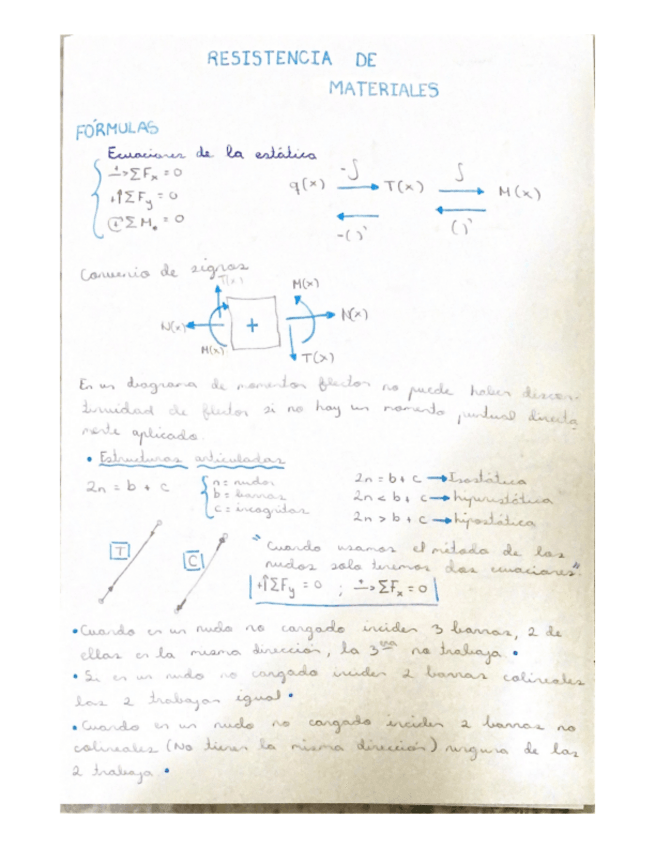 RESISTENCIA DE
MATERIALES
FÓRMULAS
Ecuaciones de la estática
→ΣFx = 0
+↑ΣFy = 0
ΣM. = 0
q(x) -∫ T(x) ∫ M(x)
-( )' ( )'
Convenio de signos
T(x) M(x)
N(x) + N(x)
M(x) T(x)
En un diagrama de momentos flector no puede haber descon-
tinuidad de flector si no hay un momento puntual directa
mente aplicado.
• Estructuras articuladas
2n = b + c
n = nudos
b = barras
c = incognitas
2n = b + c → Isostática
2n < b + c → hiperestática
2n > b + c → hipostática
T C
"Cuando usamos el método de los
nudos solo tenemos dos ecuaciones".
+↑ΣFy = 0 ; →ΣFx = 0
• Cuando en un nudo no cargado inciden 3 barras, 2 de
ellas en la misma dirección, la 3era no trabaja. •
• Si en un nudo no cargado inciden 2 barras colineales
las 2 trabajan igual •
• Cuando en un nudo no cargado inciden 2 barras no
colineales (No tienen la misma dirección) ninguna de las
2 trabaja •